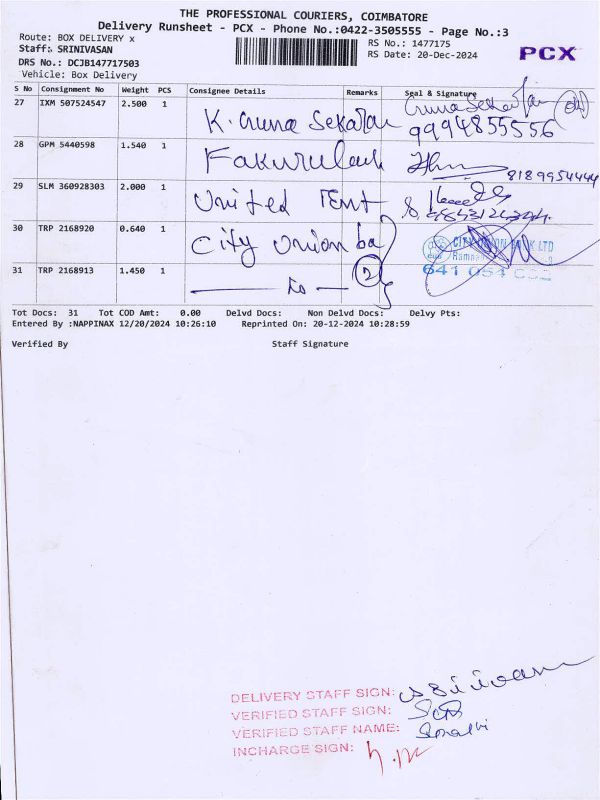 THE PROFESSIONAL COURIERS, COIMBATORE
Delivery Runsheet - PCX - Phone No.:0422-3505555 - Page No.:3
Route: BOX DELIVERY x
Staff: SRINIVASAN
DRS No.: DCJB147717503
Vehicle: Box Delivery
RS No.: 1477175
RS Date: 20-Dec-2024
PCX
S No Consignment No Weight PCS Consignee Details Remarks Seal & Signature
27 IXM 507524547 2.500 1 K. Guna Sekaran
9994855556
28 GPM 5440598 1.540 1 8189954444
29 SLM 360928303 2.000 1 United Tent
30 TRP 2168920 0.640 1 City Union CITY UNION BANK LTD
641 054
31 TRP 2168913 1.450 1 — do — 2
Tot Docs: 31 Tot COD Amt: 0.00 Delvd Docs: Non Delvd Docs: Delvy Pts:
Entered By :NAPPINAX 12/20/2024 10:26:10 Reprinted On: 20-12-2024 10:28:59
Verified By Staff Signature
DELIVERY STAFF SIGN:
VERIFIED STAFF SIGN:
VERIFIED STAFF NAME:
INCHARGE SIGN: